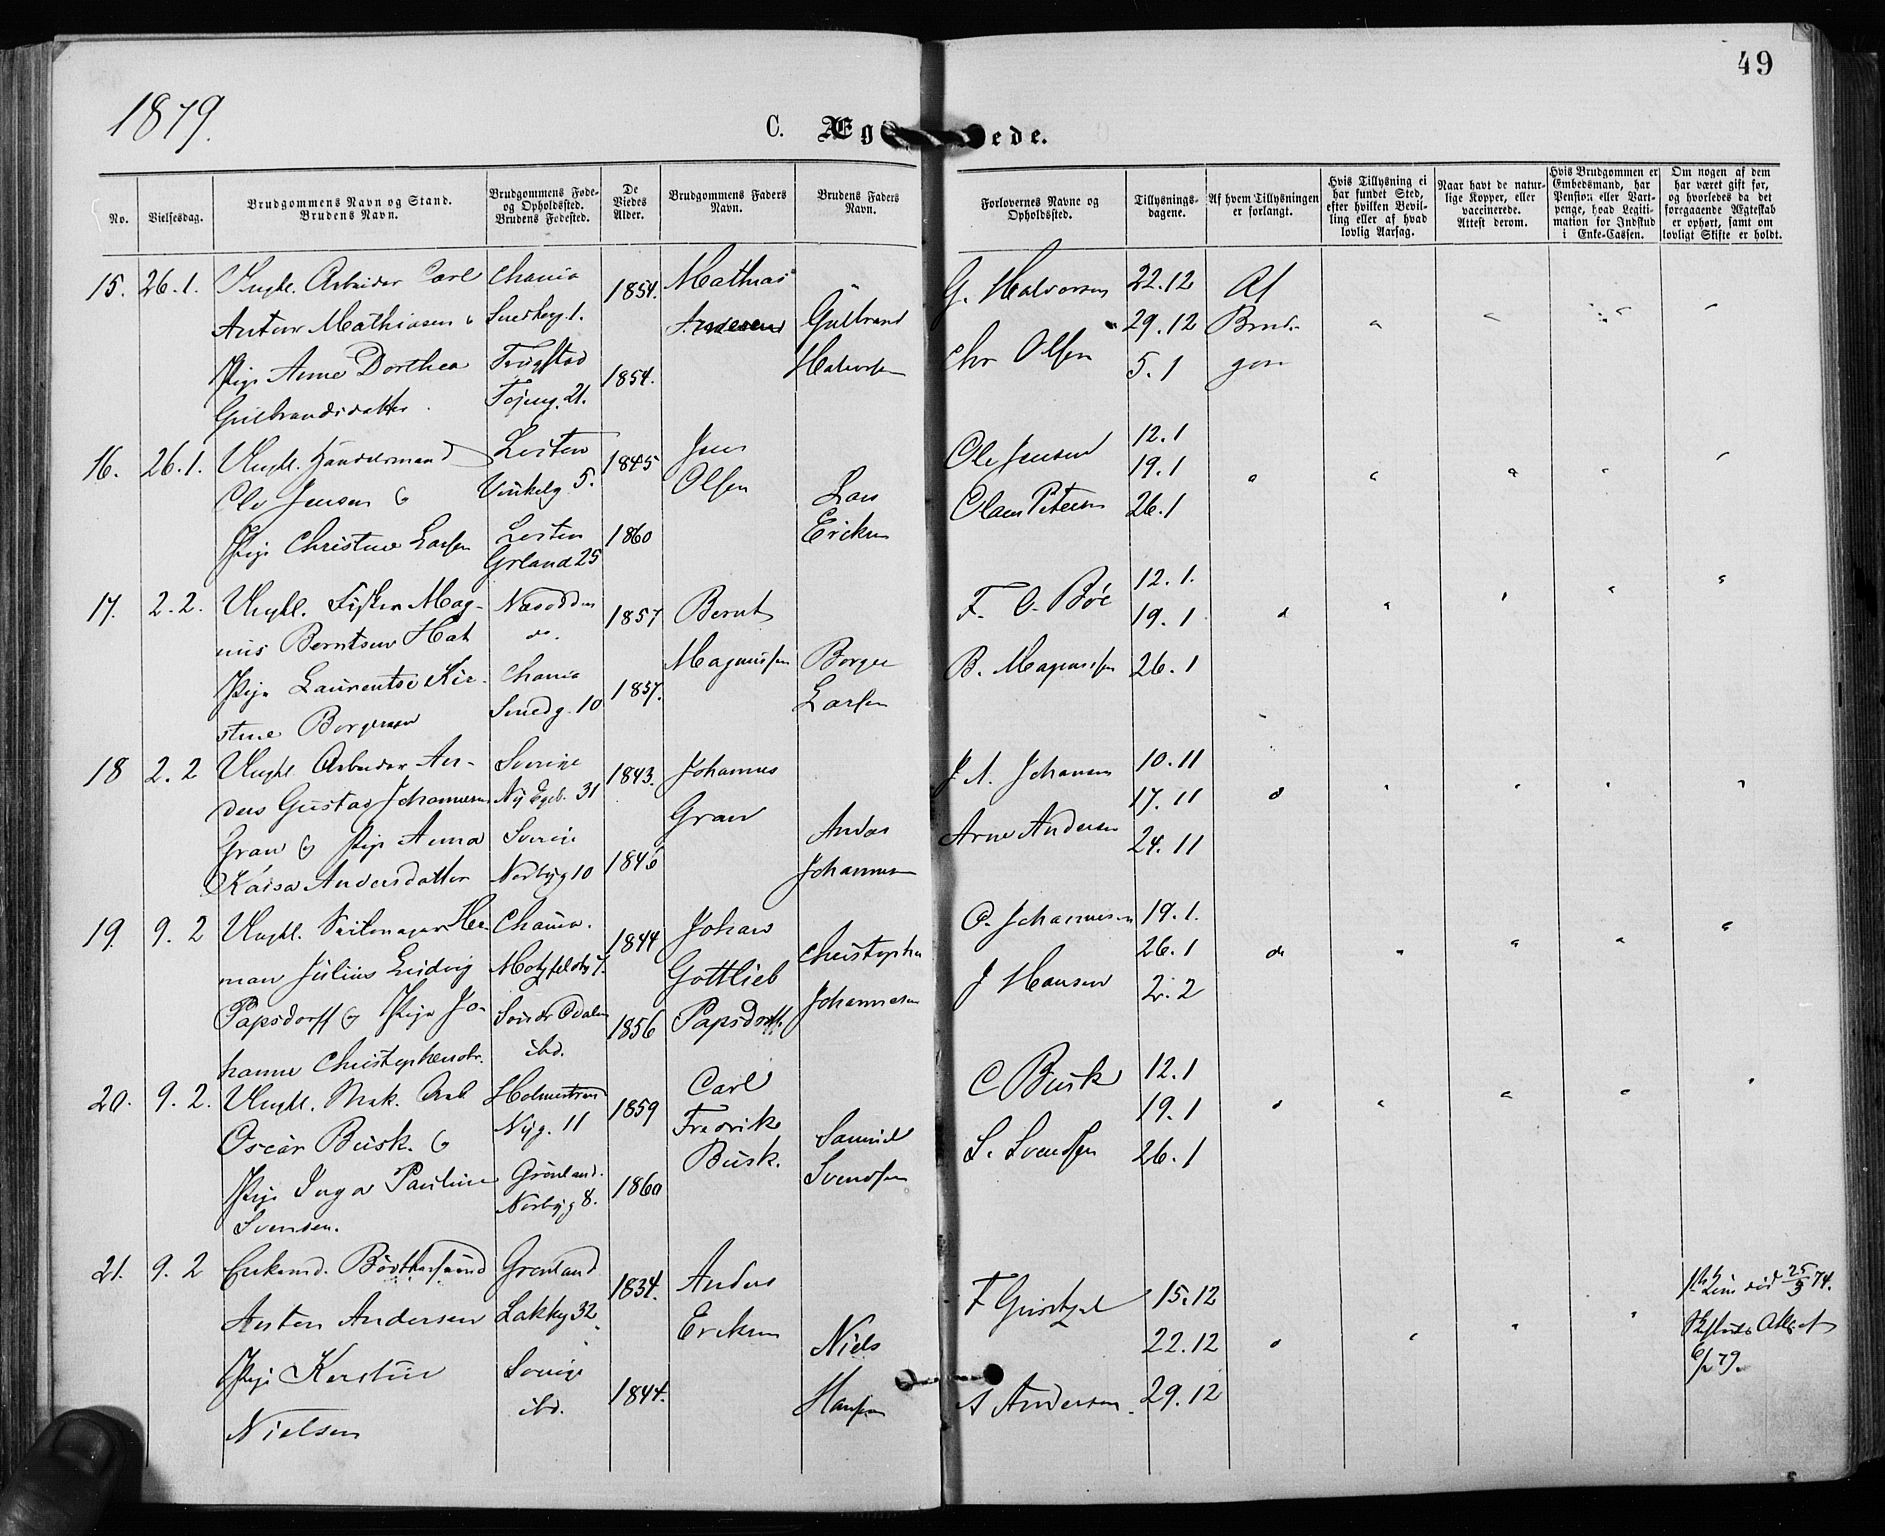 49
1879.
C. Æg ede.
No.
Vielsesdag.
Brudgommens Navn og Stand.
Brudens Navn.
Brudgommens Føde-
og Opholdssted.
Brudens Fødested.
De
Viedes
Alder.
Brudgommens Faders
Navn.
Brudens Faders
Navn.
Forlovernes Navne og
Opholdssted.
Tillysnings-
dagene.
Af hvem Tillysningen
er forlangt.
Hvis Tillysning ei
har fundet Sted,
efter hvilken Bevil-
ling eller af hvad
lovlig Aarsag.
Naar havt de natur-
lige Kopper, eller
vaccinerede.
Attest derom.
Hvis Brudgommen er
Embedsmand, har
Pension eller Vart-
penge, hvad Legiti-
mation for Indskud
i Enke-Cassen.
Om nogen af dem
har været gift før,
og hvorledes da det
foregaaende Ægteskab
er ophørt, samt om
lovligt Skifte er holdt.
15. 26.1. Ungkl. Arbeider Carl
Anton Mathiasen &
Pige Anne Dorthea
Gulbrandsdatter.
Chania
Smedbyg. 1.
Trygstad
Tøieng. 21.
1854.
1854.
Mathias
Andersen
Gulbrand
Halvorsen
G. Halvorsen
Chr Olsen
22.12
29.12
5.1
Af
Brud-
gom
16. 26.1. Ungkl. Handelsmand
Ole Jensen &
Pige Christine Larsen
Løiten
Vinkelg 5.
Løiten
Grland 25
1845
1860
Jens
Olsen
Lars
Ericksen
Ole Jensen
Claus Petersen
12.1
19.1
26.1
17. 2.2. Ungkl. Fisker Mag-
nus Berntsen Hat
Pige Laurentse Kir-
stine Borgersen
Næsodden
do.
Chania
Smedg. 10
1857
1857.
Bernt
Magnussen
Borger
Larsen
F. O. Böe
B. Magnussen
12.1.
19.1
26.1
18 2.2 Ungkl Arbeider An-
ders Gustav Johannesen
Gran & Pige Anna
Kaisa Andersdatter
Sverige
Ny Egeb. 31
Sverige
Norbyg 10
1843.
1846
Johannes
Gran
Anders
Johannesen
J. A. Johansen
Arne Andersen
10.11
17.11
24.11
19. 9.2 Ungkl. Seilmager Her-
man Julius Ludvig
Papsdorff & Pige Jo-
hanne Christophersdr.
Chania.
Motzfeldtsg 7.
Søndre Odalen
ibd.
1844
1856
Johan
Gottlieb
Papsdorff
Christopher
Johannesen
O. Johannesen
J Hansen
19.1.
26.1
2.2
20. 9.2. Ungkl. Mek. Arb
Oscar Busk. &
Pige Inga Pauline
Svensen.
Holmestrand
Nyg. 11
Grønland.
Norbyg 8.
1859
1860
Carl
Fredrik
Busk.
Samuel
Svendsen
C Busk
S. Svendsen
12.1
19.1
26.1
21. 9.2 Enkemd.
Anton Andersen
Pige Kerstin
Nielsen
Grønland
Lakkeg 32
Sverige
ibd.
1834.
1844.
Anders
Ericksen
Niels
Hansen
A Andersen
15.12
22.12
29.12
25/3 74.
79.